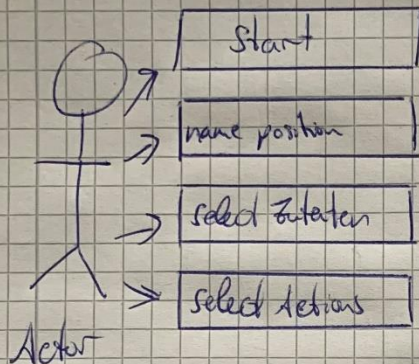 Start
name position
select Zutaten
select Actions
Actor